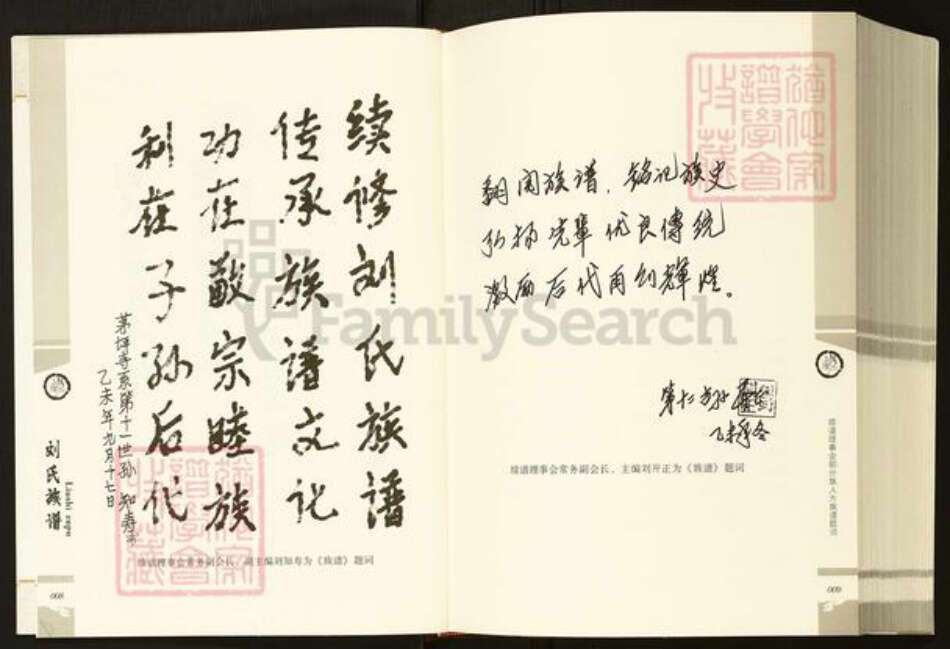 续修刘氏族谱
传承族谱文化
功在敬宗睦族
利在子孙后代
第十一世孙 知寿
乙未年九月十七日
续谱理事会常务副会长、副主编刘知寿为《族谱》题词
刘氏族谱
Liushi zupu
008
翻阅族谱，铭记族史
弘扬先辈优良傳统
激励后代再创輝煌。
乙未年冬
续谱理事会常务副会长、主编刘开正为《族谱》题词
续谱理事会部分族人为族谱题词
009
FamilySearch